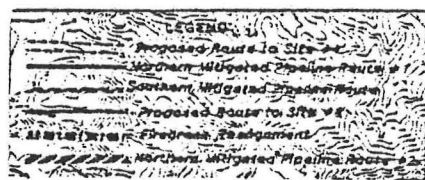 LEGEND
Proposed Route to Site #1
Northern Mitigated Pipeline Route #1
Southern Mitigated Pipeline Route
Proposed Route to Site #5
Firebreak Realignment
Northern Mitigated Pipeline Route #2